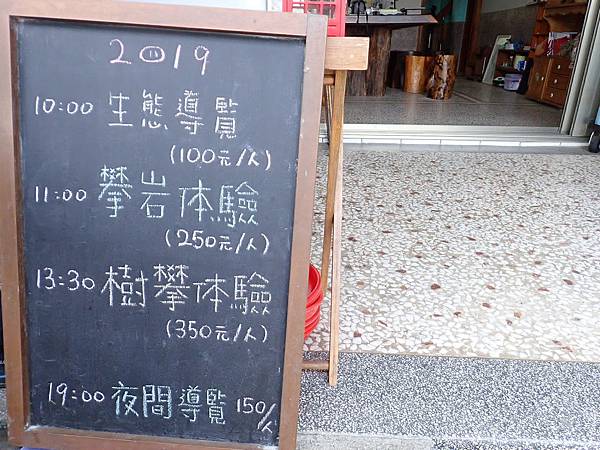 2019
10:00 生態導覽
(100元/人)
11:00 攀岩体驗
(250元/人)
13:30 樹攀体驗
(350元/人)
19:00 夜間導覽 150/人